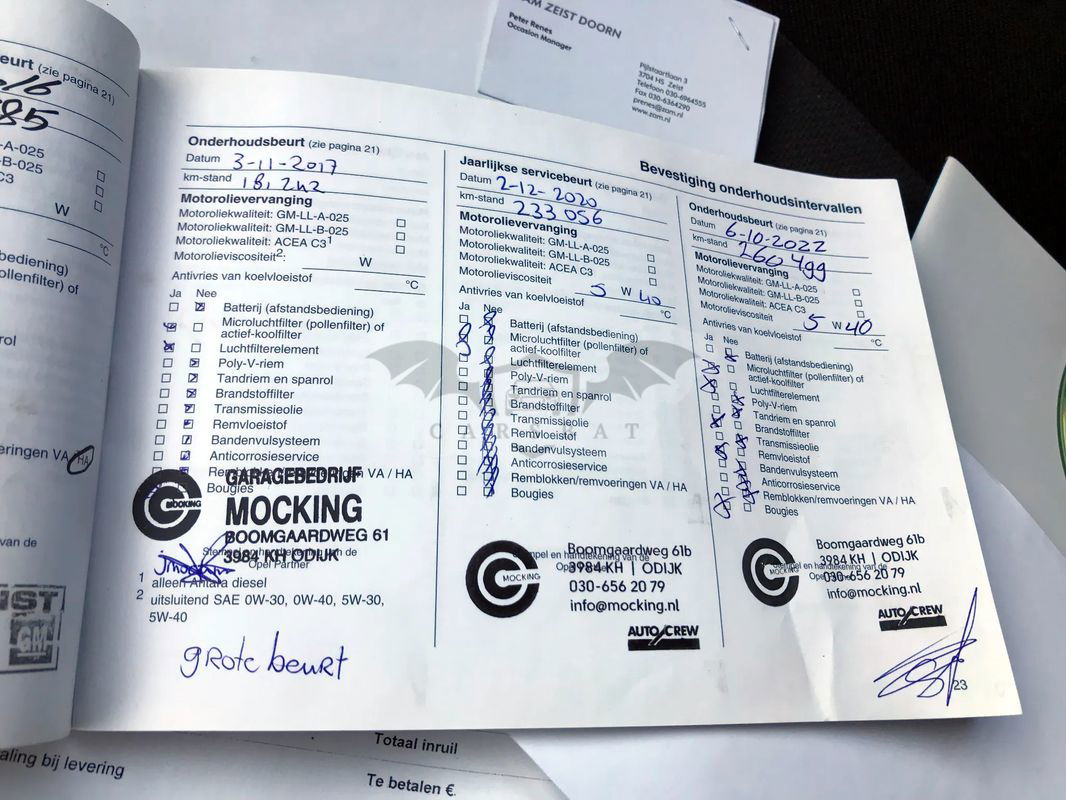 ZAM ZEIST DOORN
Peter Renes
Occasion Manager
Pijlstaartlaan 3
3704 HS Zeist
Telefoon 030-6964555
Fax 030-6364290
prenes@zam.nl
www.zam.nl
beurt (zie pagina 21)
-A-025
-B-025
C3
W
°C
bediening)
enfilter) of
rol
eringen VA / HA
van de
GM
Bevestiging onderhoudsintervallen
Onderhoudsbeurt (zie pagina 21)
Datum 3-11-2017
km-stand
Motorolievervanging
Motoroliekwaliteit: GM-LL-A-025
Motoroliekwaliteit: GM-LL-B-025
Motoroliekwaliteit: ACEA C3¹
Motorolieviscositeit²: W
Antivries van koelvloeistof °C
Ja Nee
Batterij (afstandsbediening)
Microluchtfilter (pollenfilter) of
actief-koolfilter
Luchtfilterelement
Poly-V-riem
Tandriem en spanrol
Brandstoffilter
Transmissieolie
Remvloeistof
Bandenvulsysteem
Anticorrosieservice
Remblokken/remvoeringen VA / HA
Bougies
MOCKING
GARAGEBEDRIJF
MOCKING
BOOMGAARDWEG 61
3984 KH ODIJK
Stempel en handtekening van de
Opel Partner
1 alleen Antara diesel
2 uitsluitend SAE 0W-30, 0W-40, 5W-30,
5W-40
grote beurt
Jaarlijkse servicebeurt (zie pagina 21)
Datum 2-12-2020
km-stand 233 056
Motorolievervanging
Motoroliekwaliteit: GM-LL-A-025
Motoroliekwaliteit: GM-LL-B-025
Motoroliekwaliteit: ACEA C3
Motorolieviscositeit 5 W 40
Antivries van koelvloeistof °C
Ja Nee
Batterij (afstandsbediening)
Microluchtfilter (pollenfilter) of
actief-koolfilter
Luchtfilterelement
Poly-V-riem
Tandriem en spanrol
Brandstoffilter
Transmissieolie
Remvloeistof
Bandenvulsysteem
Anticorrosieservice
Remblokken/remvoeringen VA / HA
Bougies
MOCKING
Stempel en handtekening van de
Boomgaardweg 61b
3984 KH | ODIJK
030-656 20 79
info@mocking.nl
AUTO CREW
Onderhoudsbeurt (zie pagina 21)
Datum 6-10-2022
km-stand 260 499
Motorolievervanging
Motoroliekwaliteit: GM-LL-A-025
Motoroliekwaliteit: GM-LL-B-025
Motoroliekwaliteit: ACEA C3
Motorolieviscositeit 5 W 40
Antivries van koelvloeistof °C
Ja Nee
Batterij (afstandsbediening)
Microluchtfilter (pollenfilter) of
actief-koolfilter
Luchtfilterelement
Poly-V-riem
Tandriem en spanrol
Brandstoffilter
Transmissieolie
Remvloeistof
Bandenvulsysteem
Anticorrosieservice
Remblokken/remvoeringen VA / HA
Bougies
MOCKING
Boomgaardweg 61b
3984 KH | ODIJK
030-656 20 79
info@mocking.nl
AUTO CREW
23
CARSBAT
Totaal inruil
aling bij levering
Te betalen €